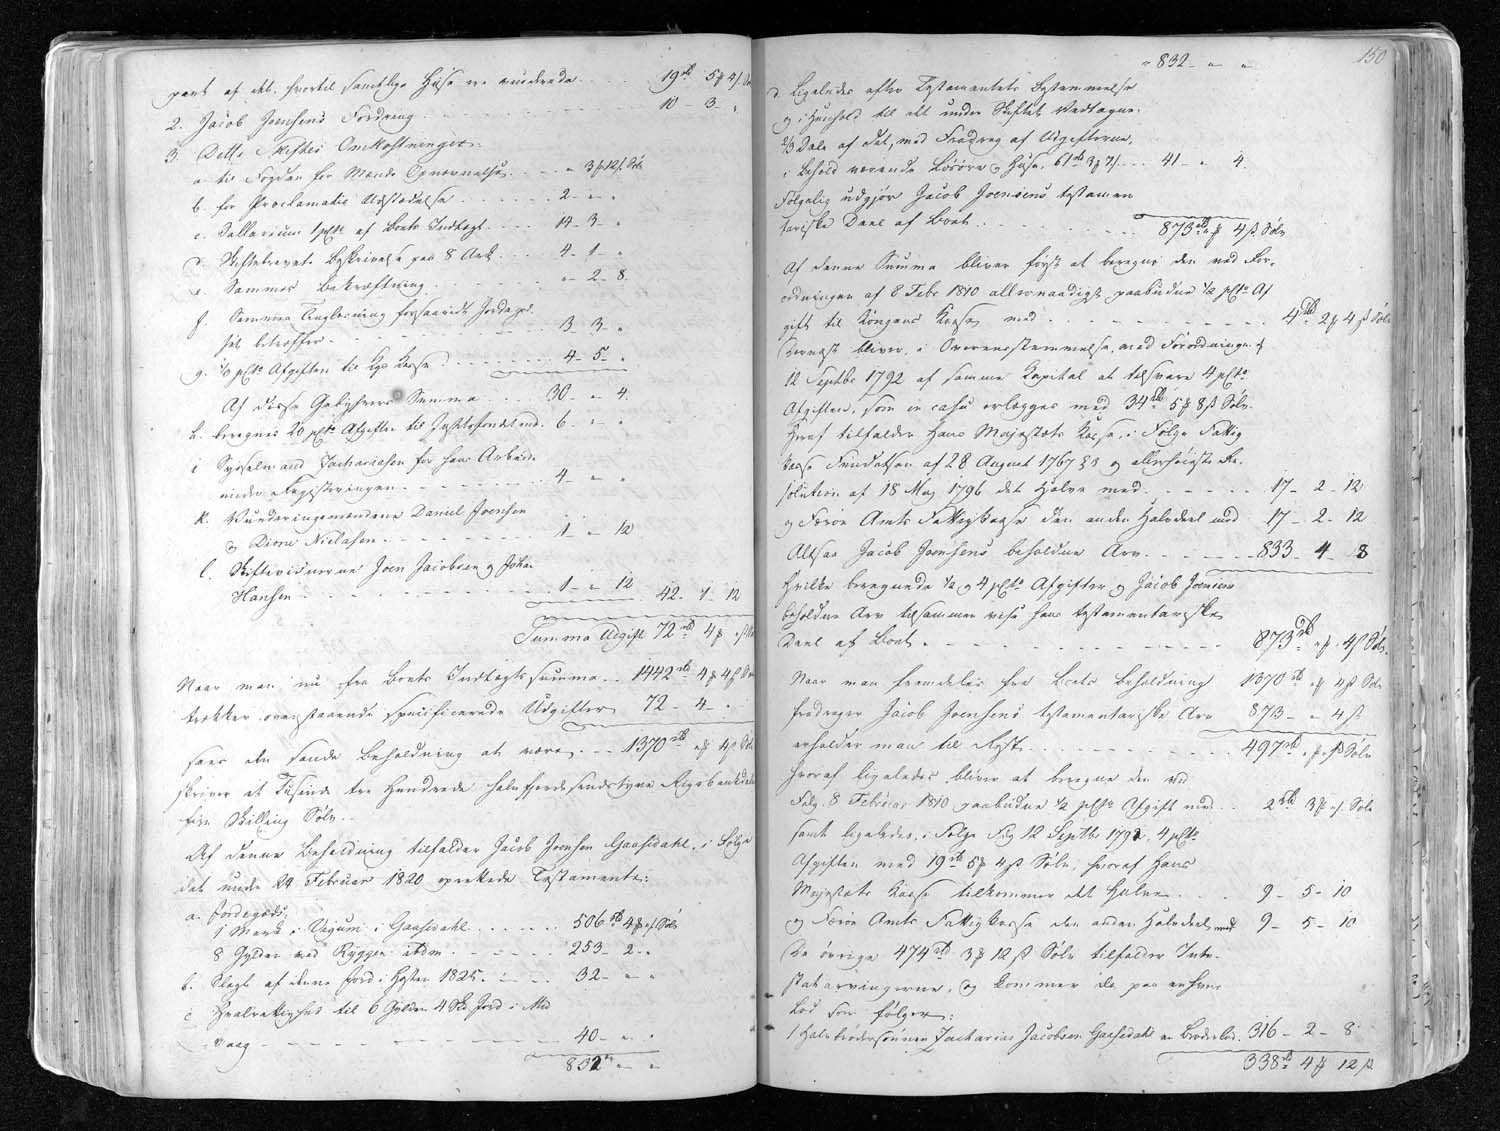 part af det, hvortil samtlige Huse ere vurderede . . . 19 rbd 5 ꝟ 4 s. Sølv
2. Jacob Joensens Fordring . . . 10 - 3 - "
3. Dette Skiftes Omkostninger:
a. til Fogden for Mænds Opnævnelse . . . " 3 ꝟ 12 s. Sølv
b. for Proclamatis Udstædelse . . . 2 - " - "
c. Sallarium 1 pCto af Boets Indtægt . . 14 - 3 - "
d. Skiftebrevets Beskrivelse paa 8 Ark . . . 4 - 1 - "
e. Sammes Bekræftning . . . " - 2 - 8
f. Samme Tinglesning forsaavidt Jordegod-
set betræffer . . . 3 - 3 - "
g. ½ pCto Afgiften til Kgs Kasse . . . 4 - 5 - "
Af disse Gebyhrers Summa . . . 30 - " - 4
h. beregnes 20 pCto Afgifter til Justitsfondet med . 6 - " - "
i Sysselmand Zachariasen for hans Arbeide
under Registeringen . . . 4 - " - "
k. Vurderingsmændene Daniel Joensen
og Dione Nielsen . . . 1 - " - 12
l. Skiftevidnerne Joen Jacobsen og Johan
Hansen . . . 1 - " - 12 42 - 1 - 12
Summa Udgift 72 rbd 4 ꝟ " s Sølv
Naar man nu fra Boets Indtægtssumma . . 1442 rbd 4 ꝟ 4 s Sølv
trækker ovenstaaende specificerede Udgifter 72 - 4 - "
sees den sande Beholdning at være . . . 1370 rbd " ꝟ 4 s Sølv
skriver et Tusinde tre Hundrede halvfjerdsindstyve Rigsbankdaler
fire Skilling Sølv. -
Af denne Beholdning tilfalder Jacob Joensen Gaasedahl, i Følge
det under 24 Februar 1820 oprettede Testamente:
a. Jordegods:
1 Mark i Uigum i Gaasedahl . . . 506 rbd 4 ꝟ " s Sølv
8 Gylden ved Ryggen ibdm . . . 253 - 2 - "
b. Slagt af denne Jord i Høsten 1825 . . . 32 - " - "
c Hvalrettighed til 6 Gylden 4 Skd Jord i Mid
vaag . . . 40 - " - "
832 rb " - "
150
" 832 - " - "
d. Ligeledes efter Testamentets Bestemmelse
og i Henhold til det under Skiftet Vedtagne.
2/3 Dele af det, med Fradrag af Udgifterne,
i Behold værende Løsøre og Huse, 61 rbd 3 ꝟ 7 s. . . . 41 - " 4
Følgelig udgjør Jacob Joensens testamen
tariske Deel af Boet . . . 873 rbd " ꝟ 4 s. Sølv
Af denne Summa bliver først at beregne den ved For-
ordningen af 8 Febr 1810 allernaadigst paabudne ½ pCto Af
gift til Kongens Kasse med . . . 4 rbd 2 ꝟ 4 s Sølv
Dernæst bliver, i Overensstemmelse med Forordningen af
12 Septbr 1792 af samme Kapital at tilsvare 4 pCto
Afgiften, som in casu erlægges med 34 rbd 5 ꝟ 8 s Sølv.
Heraf tilfalder Hans Majestæts Kasse, i Følge Fattig
kasse Fundatsen af 28 August 1767 § 3 og allerhøieste Re-
solution af 18 May 1796 det Halve med . . . 17 - 2 - 12
og Færøe Amts Fattigkasse den anden Halvdeel med 17 - 2 - 12
Altsaa Jacob Joensens beholdne Arv . . . 833 - 4 - 8
Hvilke beregnede ½ og 4 pCto Afgifter og Jacob Joensens
beholdne Arv tilsammen vise hans testamentariske
Deel af Boet . . . 873 rbd " ꝟ 4 s Sølv.
Naar man fremdeles fra Boets Beholdning 1370 rbd " ꝟ 4 s Sølv
fradrager Jacob Joensens testamentariske Arv 873 - " 4 s
erholder man til Rest . . . 497 rbd " ꝟ " s Sølv
hvoraf ligeledes bliver at beregne den ved
Fdg. 8 Februar 1810 paabudne ½ pCto Afgift med . . 2 rbd 3 ꝟ " s. Sølv
samt ligeledes, i Følge Fdg 12 Septbr 1792, 4 pCto
Afgiften med 19 rbd 5 ꝟ 4 s Sølv, hvoraf Hans
Majestæts Kasse tilkommer det Halve . . . 9 - 5 - 10
og Færøe Amts Fattigkasse den anden Halvdeel med 9 - 5 - 10
De øvrige 474 rbd 3 ꝟ 12 s Sølv tilfalder Inte-
statarvingerne, og kommer de paa enhver
Lod som følger:
1 Halvbrodersønnen Zacharias Jacobsen Gaasedahl en Broderlod . 316 - 2 - 8
338 rbd 4 ꝟ 12 s